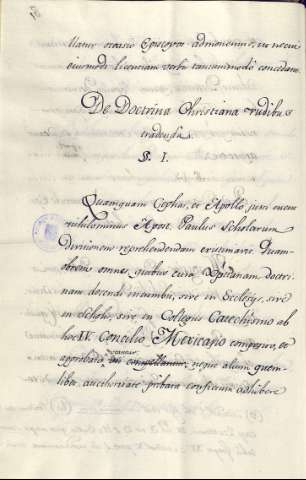 tiatur erratio Episcopos admonemus, ut ne cui
ejusmodi licentiam verbo tantummodo concedant.
De Doctrina Christiana rudibus
tradenda.
§. I.
Quamquam Cephas, et Apollo, pari eucon
nihilominus Apost. Paulus Scholarum
divisionem reprehendendam existimavit. Quam-
obrem omnes, quibus cura Xptianam doctri-
nam docendi incumbit, sive in Ecclesijs, sive
in Scholis, sive in Collegijs Catechismo ab
hoc IV. Concilio Mexicano composito, et
approbato utantur, neque alium quem-
libet auctoritate privata confictum adhibere